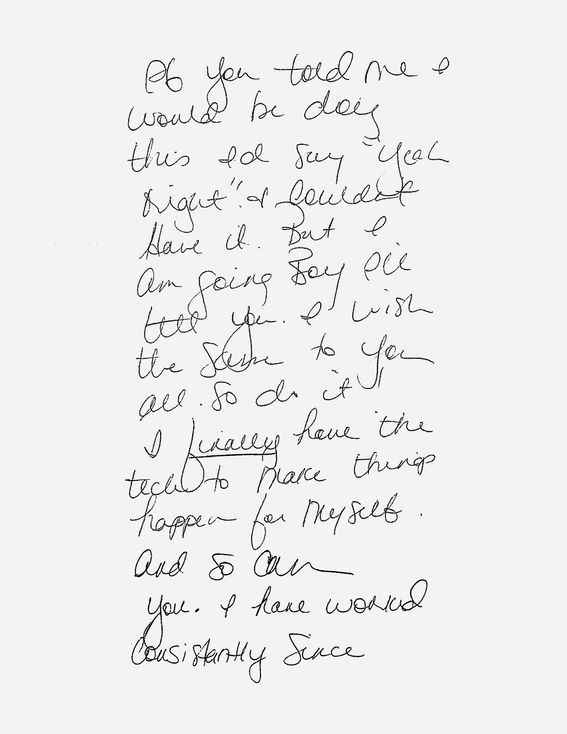 If you told me I
would be doing
this I'd say "Yeah
Right". I couldn't
Have it. But I
am going Boy I'll
tell you. I wish
the same to you
all. So do it!
I finally have the
tech to make things
happen for myself.
And so can
you. I have worked
Consistantly Since